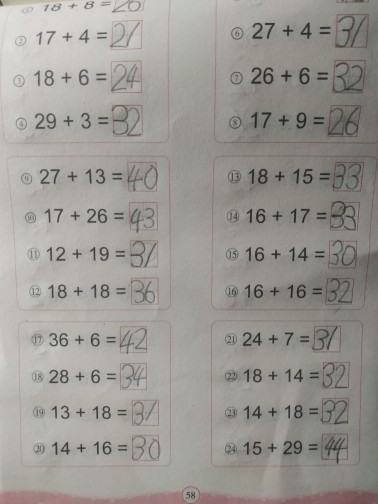 ① 18 + 8 = 26
② 17 + 4 = 21
③ 18 + 6 = 24
④ 29 + 3 = 32
⑥ 27 + 4 = 31
⑦ 26 + 6 = 32
⑧ 17 + 9 = 26
⑨ 27 + 13 = 40
⑩ 17 + 26 = 43
⑪ 12 + 19 = 31
⑫ 18 + 18 = 36
⑬ 18 + 15 = 33
⑭ 16 + 17 = 33
⑮ 16 + 14 = 30
⑯ 16 + 16 = 32
⑰ 36 + 6 = 42
⑱ 28 + 6 = 34
⑲ 13 + 18 = 31
⑳ 14 + 16 = 30
㉑ 24 + 7 = 31
㉒ 18 + 14 = 32
㉓ 14 + 18 = 32
㉔ 15 + 29 = 44
58